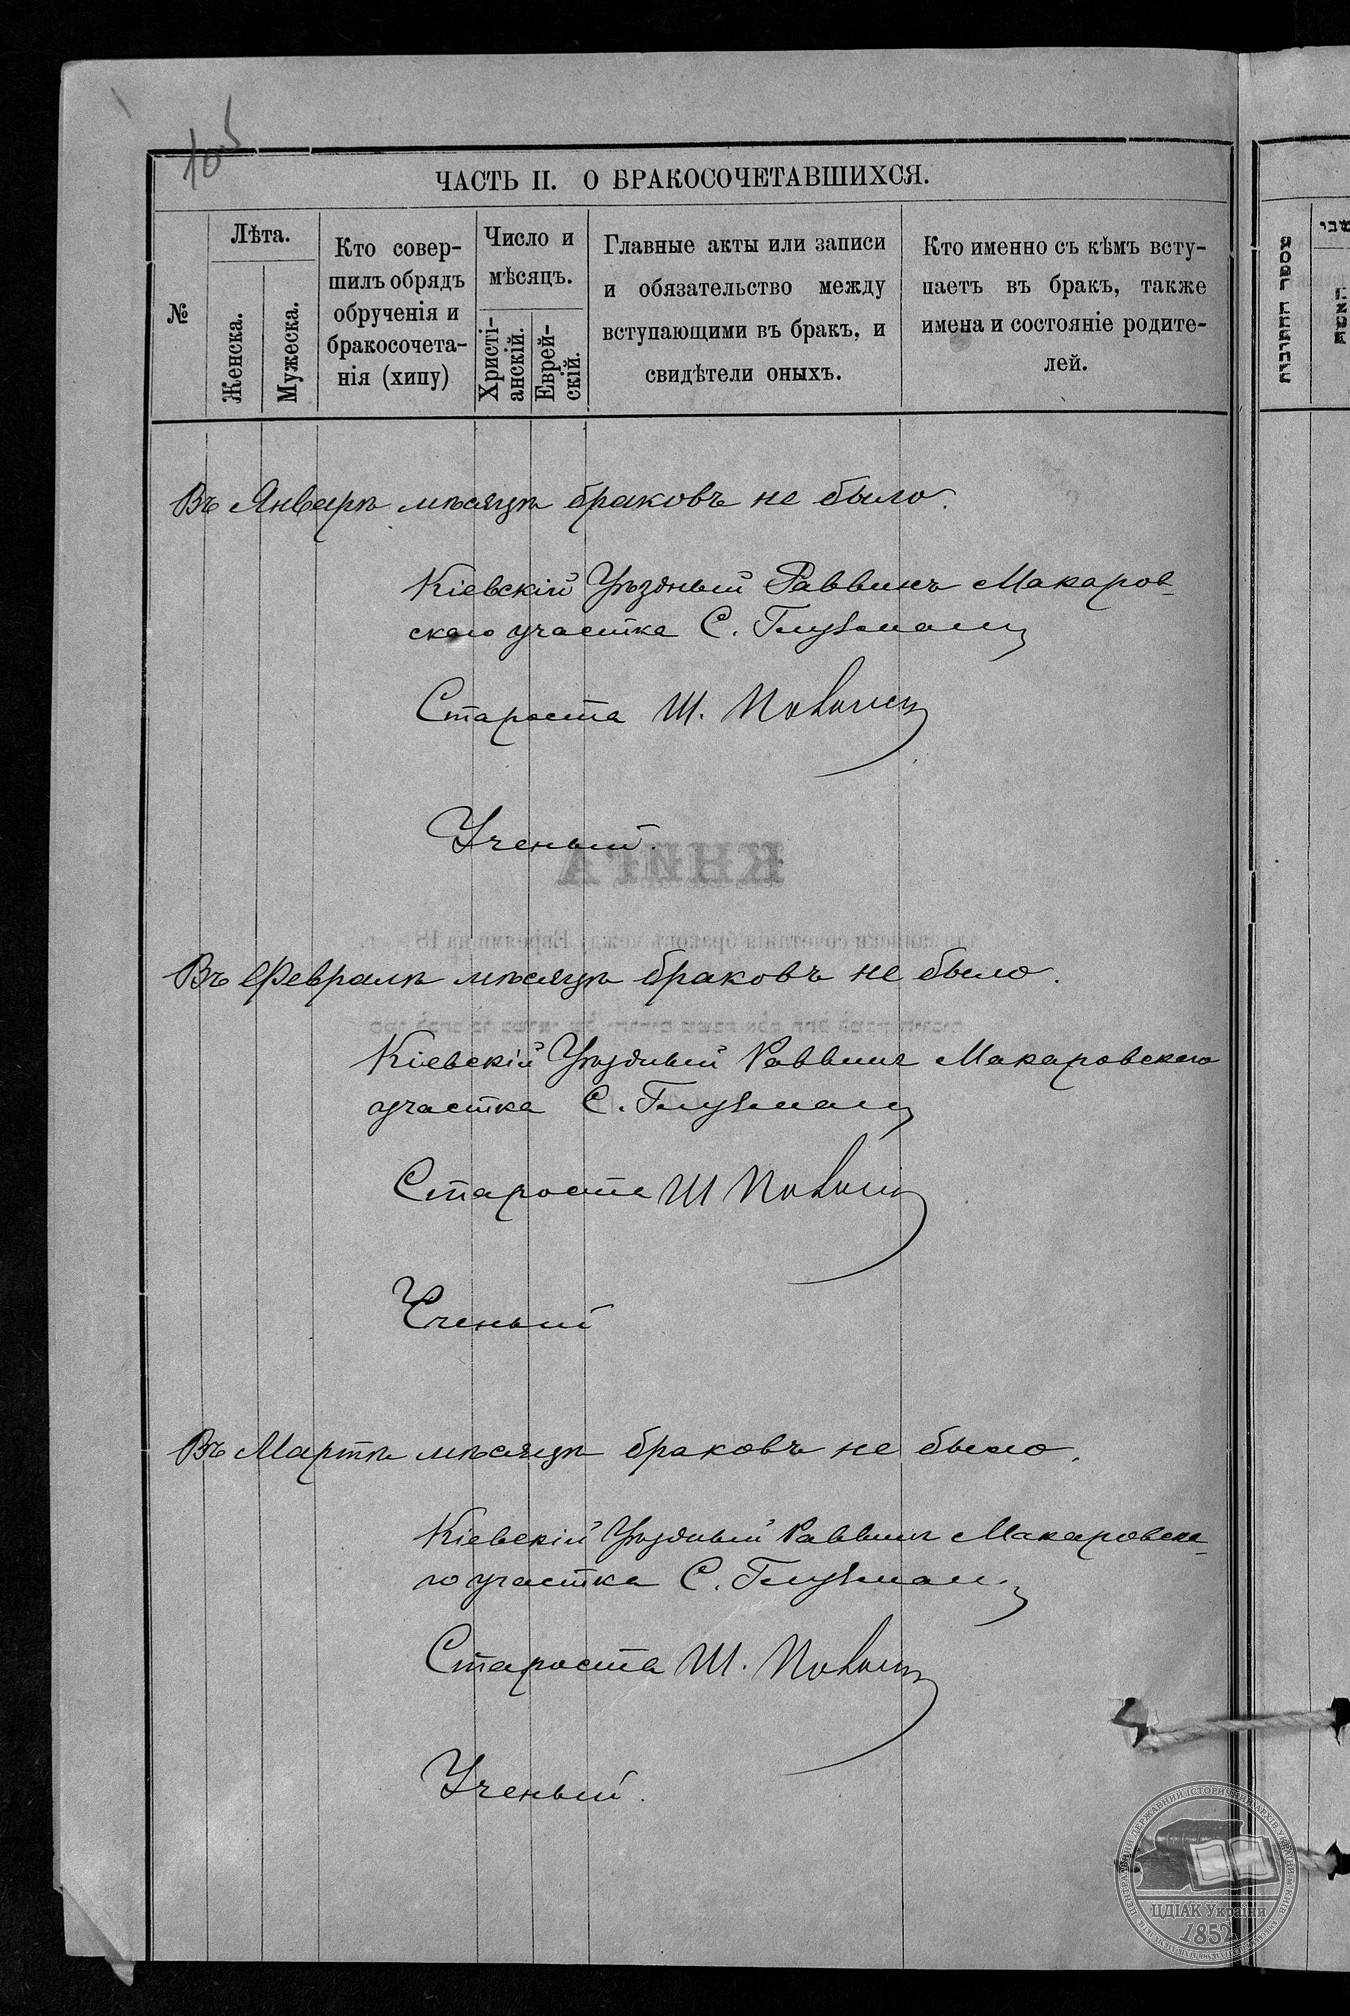 105
ЧАСТЬ II. О БРАКОСОЧЕТАВШИХСЯ.
№
Лѣта.
Женска.
Мужеска.
Кто совер-
шилъ обрядъ
обрученія и
бракосочета-
нія (хипу)
Число и
мѣсяцъ.
Христі-
анскій.
Еврей-
скій.
Главные акты или записи
и обязательство между
вступающими въ бракъ, и
свидѣтели оныхъ.
Кто именно съ кѣмъ всту-
паетъ въ бракъ, также
имена и состояніе родите-
лей.
Въ Январѣ мѣсяцѣ браковъ не было.
Кіевскій Уѣздный Раввинъ Макаров-
скаго участка С. Глузманъ
Староста Ш.
Ученый.
КНИГА
Въ Февралѣ мѣсяцѣ браковъ не было.
Кіевскій Уѣздный Раввинъ Макаровскаго
участка С. Глузманъ
Староста Ш
Ученый
Въ Мартѣ мѣсяцѣ браковъ не было.
Кіевскій Уѣздный Раввинъ Макаровска-
го участка С. Глузманъ
Староста Ш.
Ученый.
ЦДІАК України
1852